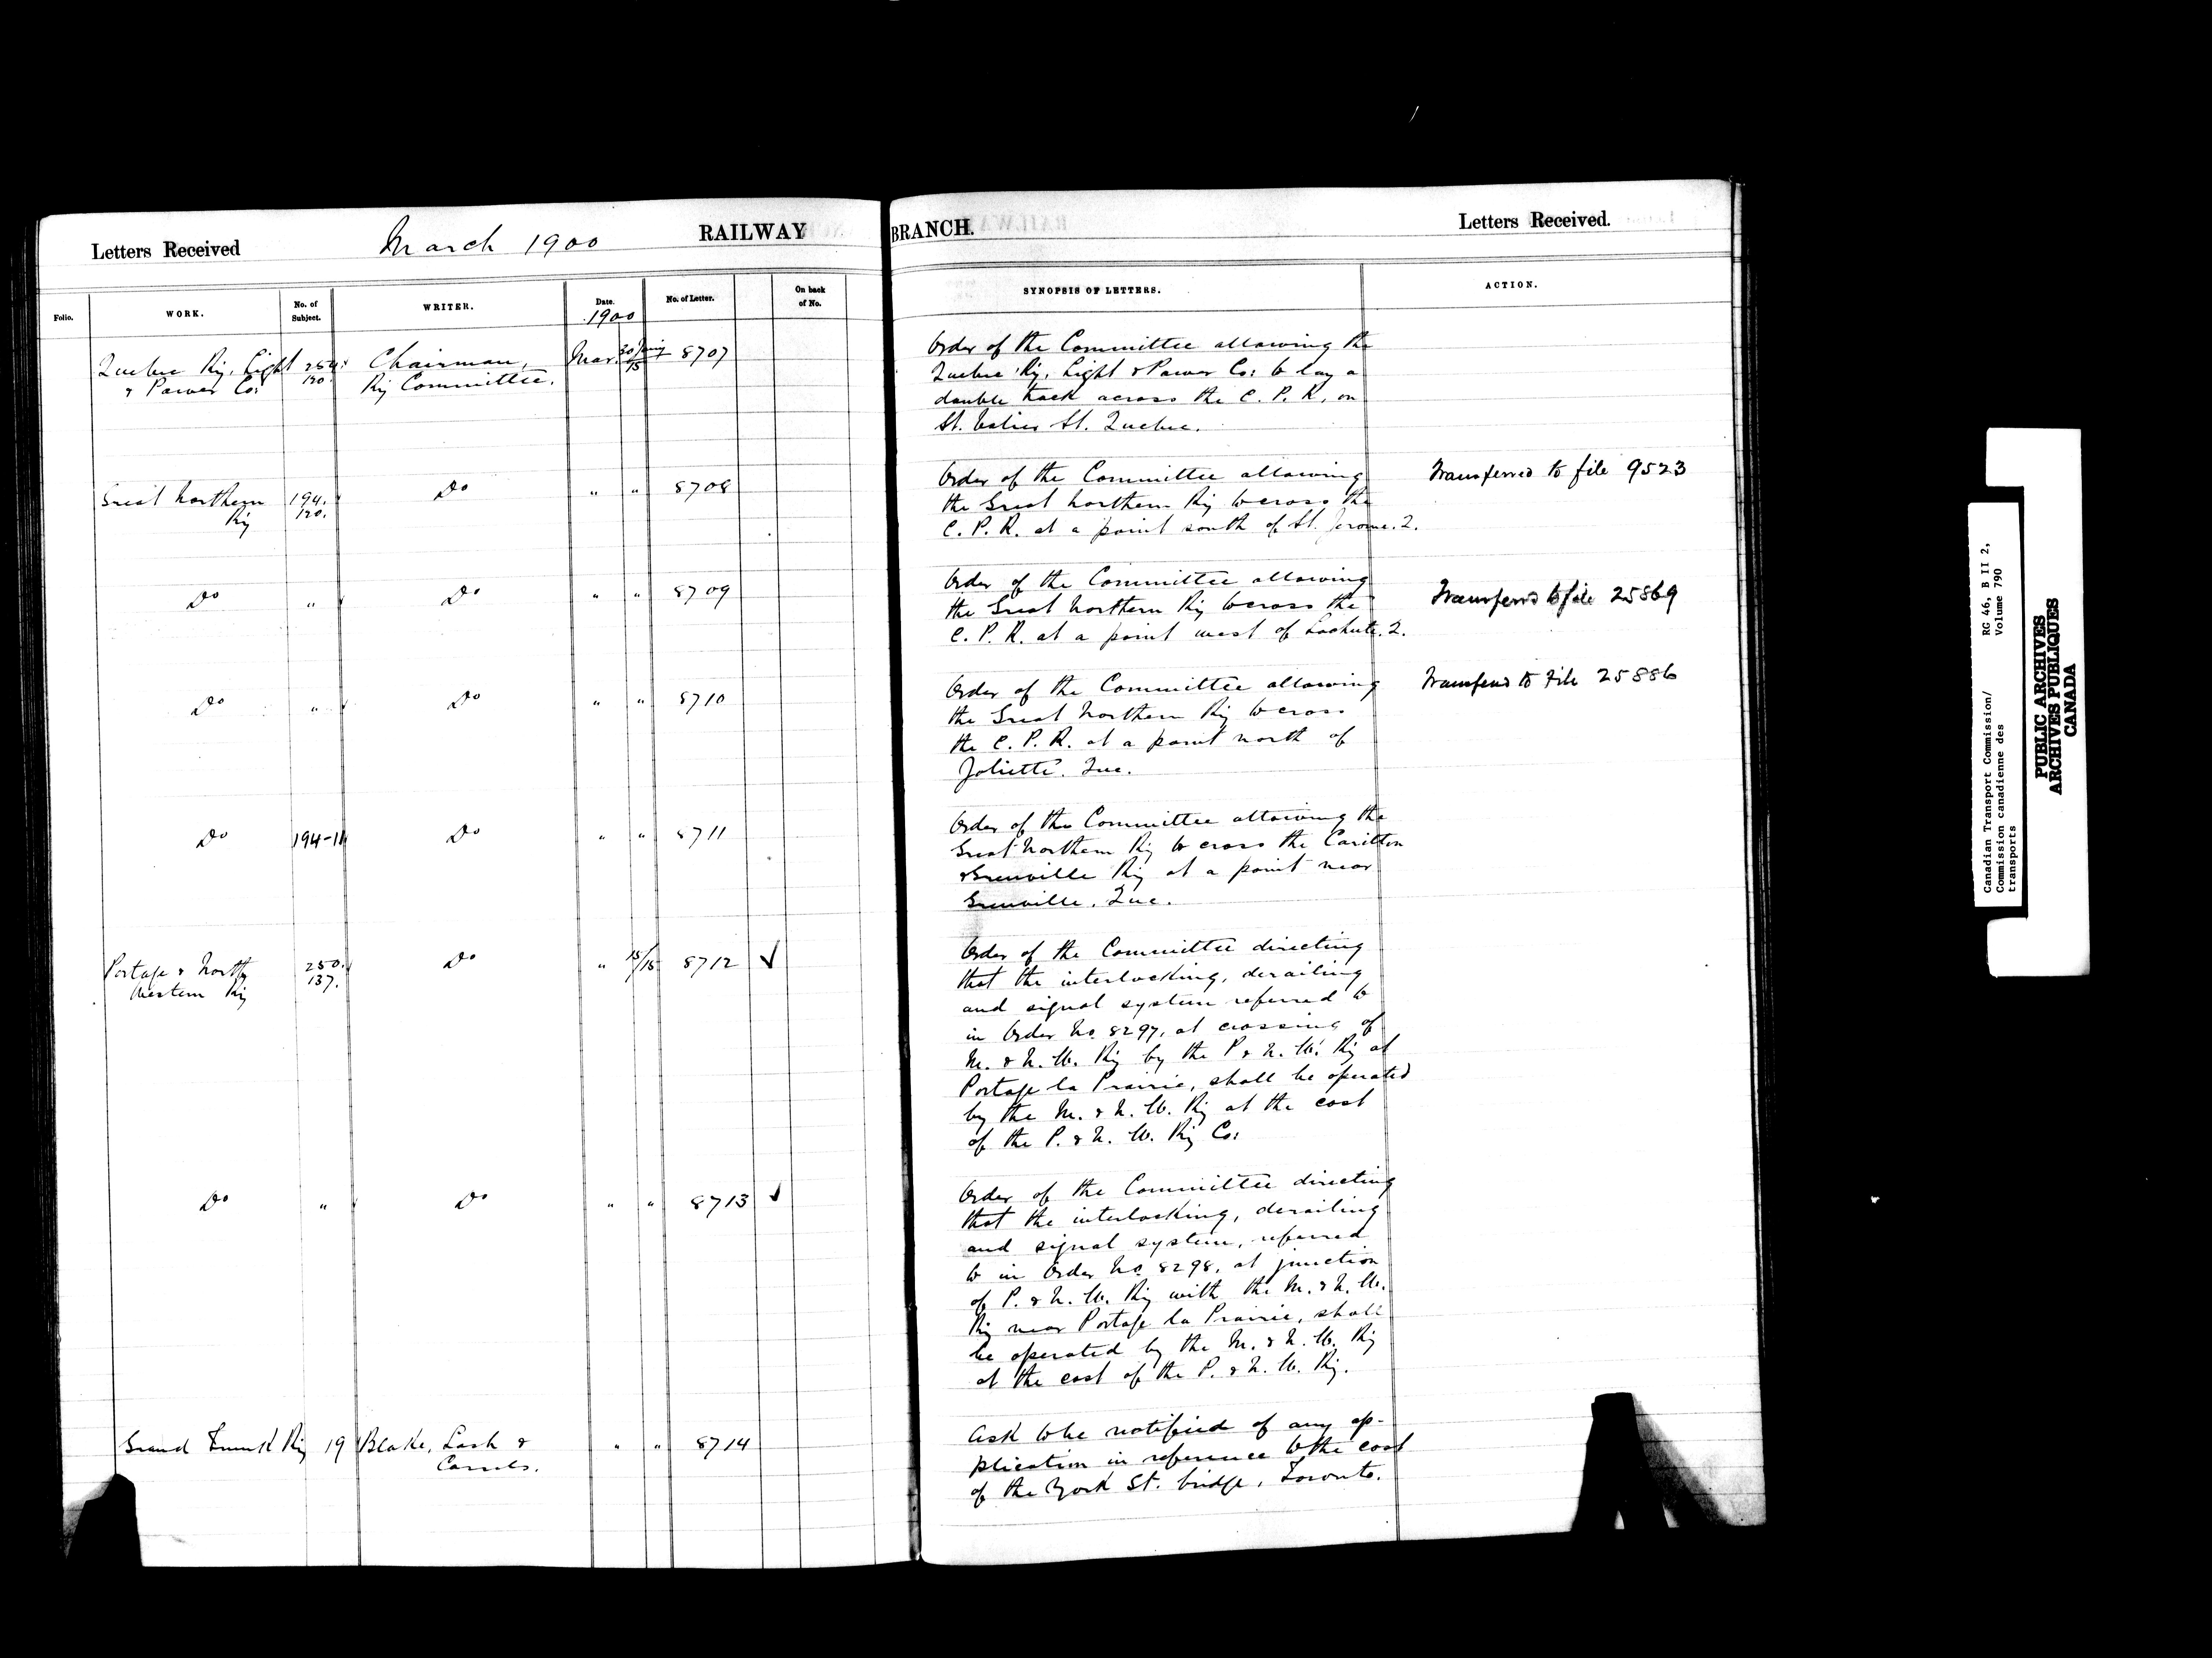 Letters Received March 1900 RAILWAY BRANCH. Letters Received.
Folio. WORK. No. of Subject. WRITER. Date. 1900 No. of Letter. On back of No. SYNOPSIS OF LETTERS. ACTION.
Quebec Ry. Light 254. Chairman, Mar. 8707
& Power Co: 120. Ry Committee. 15
Order of the Committee allowing the
Quebec Ry. Light & Power Co: to lay a
double track across the C. P. R. on
St. Valier St. Quebec.
Great Northern 194. Do " " 8708
Ry 120.
Order of the Committee allowing
the Great Northern Ry to cross the
C. P. R. at a point south of St. Jerome. Q.
Transferred to file 9523
Do " Do " " 8709
Order of the Committee allowing
the Great Northern Ry to cross the
C. P. R. at a point west of Lachute. Q.
Transferred to file 25869
Do " Do " " 8710
Order of the Committee allowing
the Great Northern Ry to cross
the C. P. R. at a point north of
Joliette. Que.
Transferred to File 25886
Do 194-11 Do " " 8711
Order of the Committee allowing the
Great Northern Ry to cross the Carillon
& Grenville Ry at a point near
Grenville. Que.
Portage & North 250. Do " 15/15 8712 ✓
Western Ry 137.
Order of the Committee directing
that the interlocking, derailing
and signal system referred to
in Order No. 8297, at crossing of
M. & N. W. Ry by the P & N. W. Ry at
Portage la Prairie, shall be operated
by the M. & N. W. Ry at the cost
of the P. & N. W. Ry Co:
Do " Do " " 8713 ✓
Order of the Committee directing
that the interlocking, derailing
and signal system, referred
to in Order No. 8298, at junction
of P. & N. W. Ry with the M. & N. W.
Ry near Portage la Prairie, shall
be operated by the M. & N. W. Ry
at the cost of the P. & N. W. Ry.
Grand Trunk Ry 19 Blake, Lash & " " 8714
Cassels.
Ask to be notified of any ap-
plication in reference to the cost
of the York St. bridge, Toronto.
Canadian Transport Commission/ RG 46, B II 2,
Commission canadienne des Volume 790
transports
PUBLIC ARCHIVES
ARCHIVES PUBLIQUES
CANADA